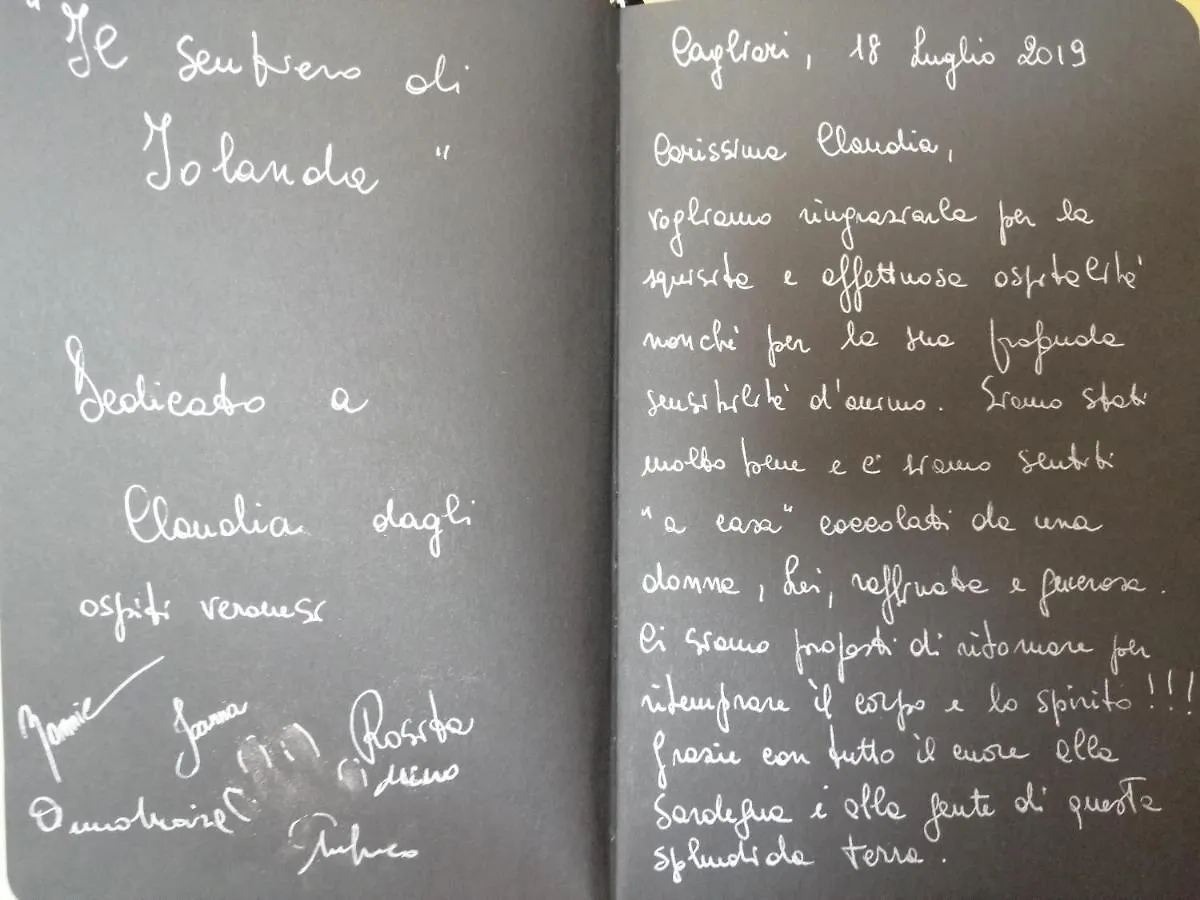 "Il sentiero di
Iolanda"
Dedicato a
Claudia dagli
ospiti veronesi
Rosita
Cagliari, 18 Luglio 2019
Carissima Claudia,
vogliamo ringraziarla per la
squisita e affettuosa ospitalità
nonchè per la sua profonda
sensibilità d'animo. Siamo stati
molto bene e ci siamo sentiti
"a casa" coccolati da una
donna, Lei, raffinata e generosa.
Ci siamo proposti di ritornare per
ritemprare il corpo e lo spirito!!!
Grazie con tutto il cuore alla
Sardegna e alla gente di questa
splendida terra.